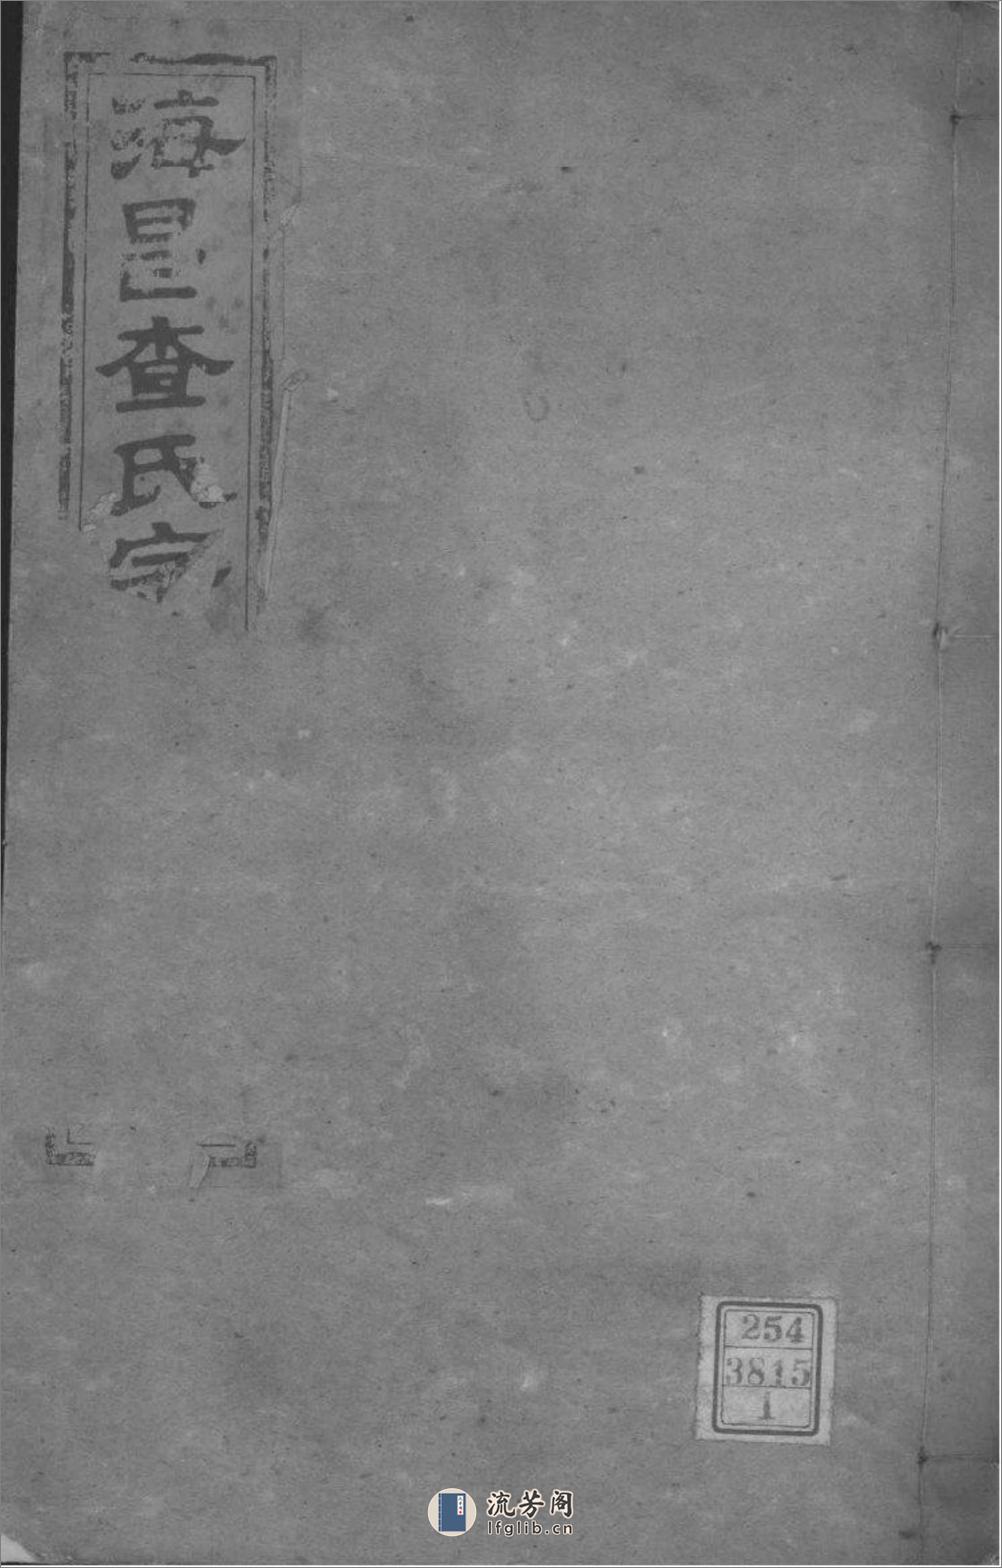 海昌查氏宗
254
3815
1
流芳阁
lfglib.cn